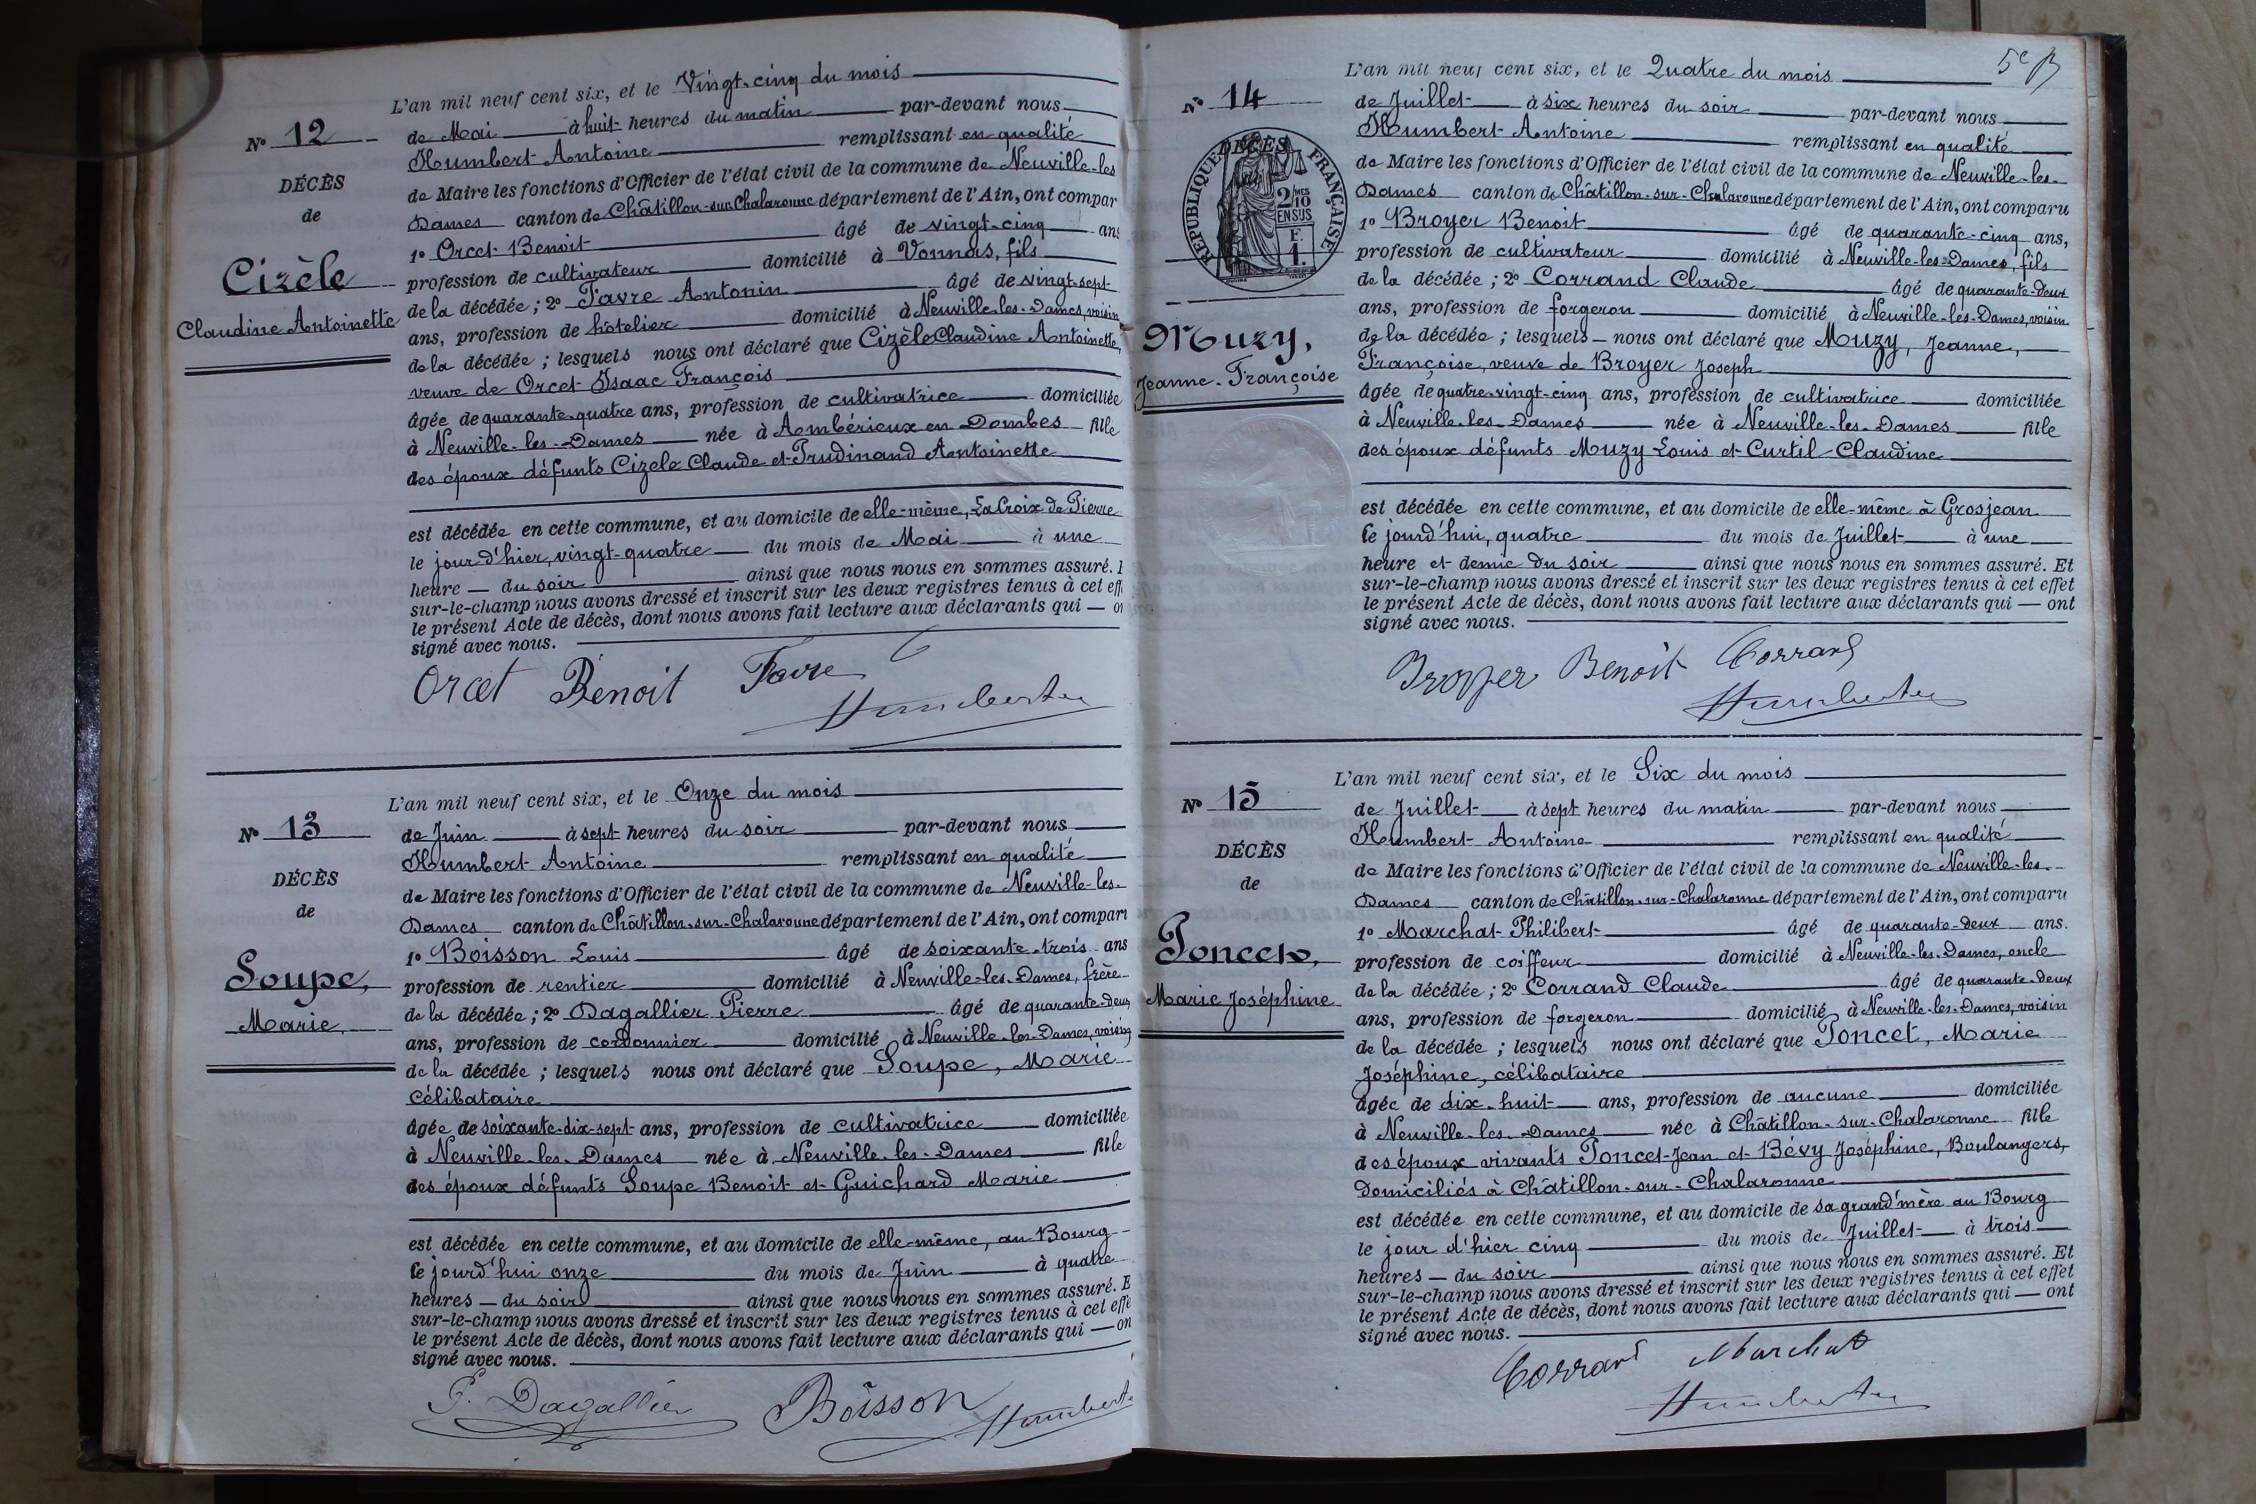 L'an mil neuf cent six, et le Vingt-cinq du mois
Nº 12
DÉCÈS
de
Cizèle
Claudine Antoinette
de Mai à huit heures du matin par-devant nous
Humbert Antoine remplissant en qualité
de Maire les fonctions d'Officier de l'état civil de la commune de Neuville-les
Dames canton de Châtillon-sur-Chalaronne département de l'Ain, ont compar
1º Orcet Benoit âgé de vingt-cinq ans
profession de cultivateur domicilié à Vonnas, fils
de la décédée ; 2º Favre Antonin âgé de vingt-sept
ans, profession de hôtelier domicilié à Neuville-les-Dames, voisin
de la décédée ; lesquels nous ont déclaré que Cizèle Claudine Antoinette,
veuve de Orcet Isaac François
âgée de quarante-quatre ans, profession de cultivatrice domiciliée
à Neuville-les-Dames née à Ambérieux en Dombes fille
des époux défunts Cizele Claude et Prudinand Antoinette
est décédée en cette commune, et au domicile de elle-même, La Croix de Pierre
le jour d'hier, vingt-quatre du mois de Mai à une
heure — du soir ainsi que nous nous en sommes assuré. E
sur-le-champ nous avons dressé et inscrit sur les deux registres tenus à cet eff
le présent Acte de décès, dont nous avons fait lecture aux déclarants qui — on
signé avec nous.
Orcet Benoit Favre
Humbert Ane
L'an mil neuf cent six, et le Onze du mois
Nº 13
DÉCÈS
de
Soupe,
Marie,
de Juin à sept heures du soir par-devant nous
Humbert Antoine remplissant en qualité
de Maire les fonctions d'Officier de l'état civil de la commune de Neuville-les-
Dames canton de Châtillon-sur-Chalaronne département de l'Ain, ont comparu
1º Boisson Louis âgé de soixante-trois ans
profession de rentier domicilié à Neuville-les-Dames, frère
de la décédée ; 2º Dagallier Pierre âgé de quarante-deux
ans, profession de cordonnier domicilié à Neuville-les-Dames, voisin
de la décédée ; lesquels nous ont déclaré que Soupe, Marie
célibataire
âgée de soixante-dix-sept ans, profession de cultivatrice domiciliée
à Neuville-les-Dames née à Neuville-les-Dames fille
des époux défunts Soupe Benoit et Guichard Marie
est décédée en cette commune, et au domicile de elle-même, au Bourg
ce jourd'hui onze du mois de Juin à quatre
heures — du soir ainsi que nous nous en sommes assuré. E
sur-le-champ nous avons dressé et inscrit sur les deux registres tenus à cet effe
le présent Acte de décès, dont nous avons fait lecture aux déclarants qui — on
signé avec nous.
P. Dagallier Boisson Humbert
5e
L'an mil neuf cent six, et le Quatre du mois
Nº 14
RÉPUBLIQUE FRANÇAISE
DÉCÈS
2 MES 10 EN SUS
F. 1.
Muzy,
Jeanne-Françoise
de Juillet à six heures du soir par-devant nous
Humbert Antoine remplissant en qualité
de Maire les fonctions d'Officier de l'état civil de la commune de Neuville-les-
Dames canton de Châtillon-sur-Chalaronne département de l'Ain, ont comparu
1º Broyer Benoit âgé de quarante-cinq ans,
profession de cultivateur domicilié à Neuville-les-Dames, fils
de la décédée ; 2º Corrand Claude âgé de quarante-deux
ans, profession de forgeron domicilié à Neuville-les-Dames, voisin
de la décédée ; lesquels — nous ont déclaré que Muzy, Jeanne,
Françoise, veuve de Broyer Joseph
âgée de quatre-vingt-cinq ans, profession de cultivatrice domiciliée
à Neuville-les-Dames née à Neuville-les-Dames fille
des époux défunts Muzy Louis et Curtil Claudine
est décédée en cette commune, et au domicile de elle-même à Grosjean
ce jourd'hui, quatre du mois de Juillet à une
heure et demie du soir ainsi que nous nous en sommes assuré. Et
sur-le-champ nous avons dressé et inscrit sur les deux registres tenus à cet effet
le présent Acte de décès, dont nous avons fait lecture aux déclarants qui — ont
signé avec nous.
Broyer Benoit Corrand
Humbert Ane
L'an mil neuf cent six, et le Six du mois
Nº 15
DÉCÈS
de
Poncet,
Marie Joséphine
de Juillet à sept heures du matin par-devant nous
Humbert Antoine remplissant en qualité
de Maire les fonctions d'Officier de l'état civil de la commune de Neuville-les-
Dames canton de Châtillon-sur-Chalaronne département de l'Ain, ont comparu
1º Marchat Philibert âgé de quarante-deux ans.
profession de coiffeur domicilié à Neuville-les-Dames, oncle
de la décédée ; 2º Corrand Claude âgé de quarante-deux
ans, profession de forgeron domicilié à Neuville-les-Dames, voisin
de la décédée ; lesquels nous ont déclaré que Poncet, Marie
Joséphine, célibataire
âgée de dix-huit ans, profession de aucune domiciliée
à Neuville-les-Dames née à Châtillon-sur-Chalaronne fille
des époux vivants Poncet Jean et Bévy Joséphine, Boulangers,
domiciliés à Châtillon-sur-Chalaronne
est décédée en cette commune, et au domicile de sa grand'mère au Bourg
le jour d'hier cinq du mois de Juillet à trois
heures — du soir ainsi que nous nous en sommes assuré. Et
sur-le-champ nous avons dressé et inscrit sur les deux registres tenus à cet effet
le présent Acte de décès, dont nous avons fait lecture aux déclarants qui — ont
signé avec nous.
Corrand Marchat
Humbert Ane